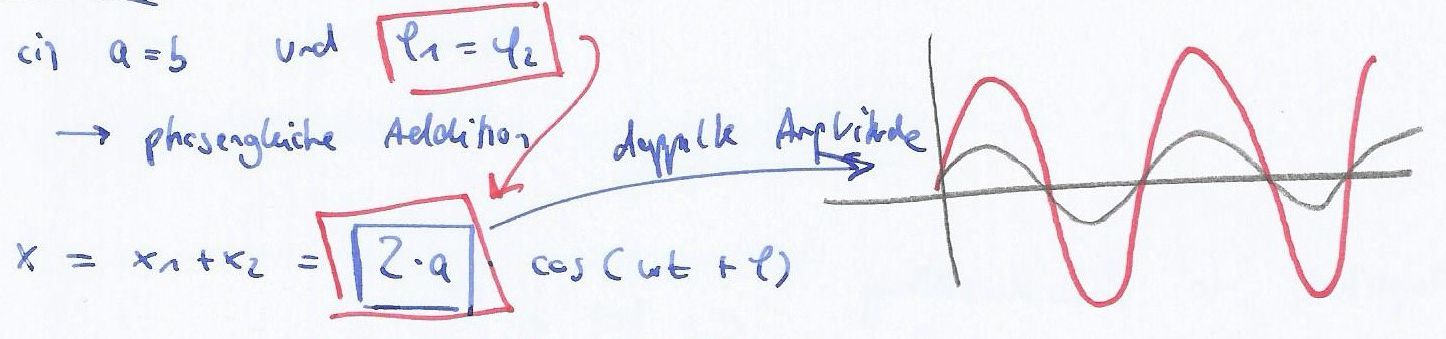 (i) a = b und φ1 = φ2
→ phasengleiche Addition doppelte Amplitude
x = x1 + x2 = 2·a · cos(ωt + φ)